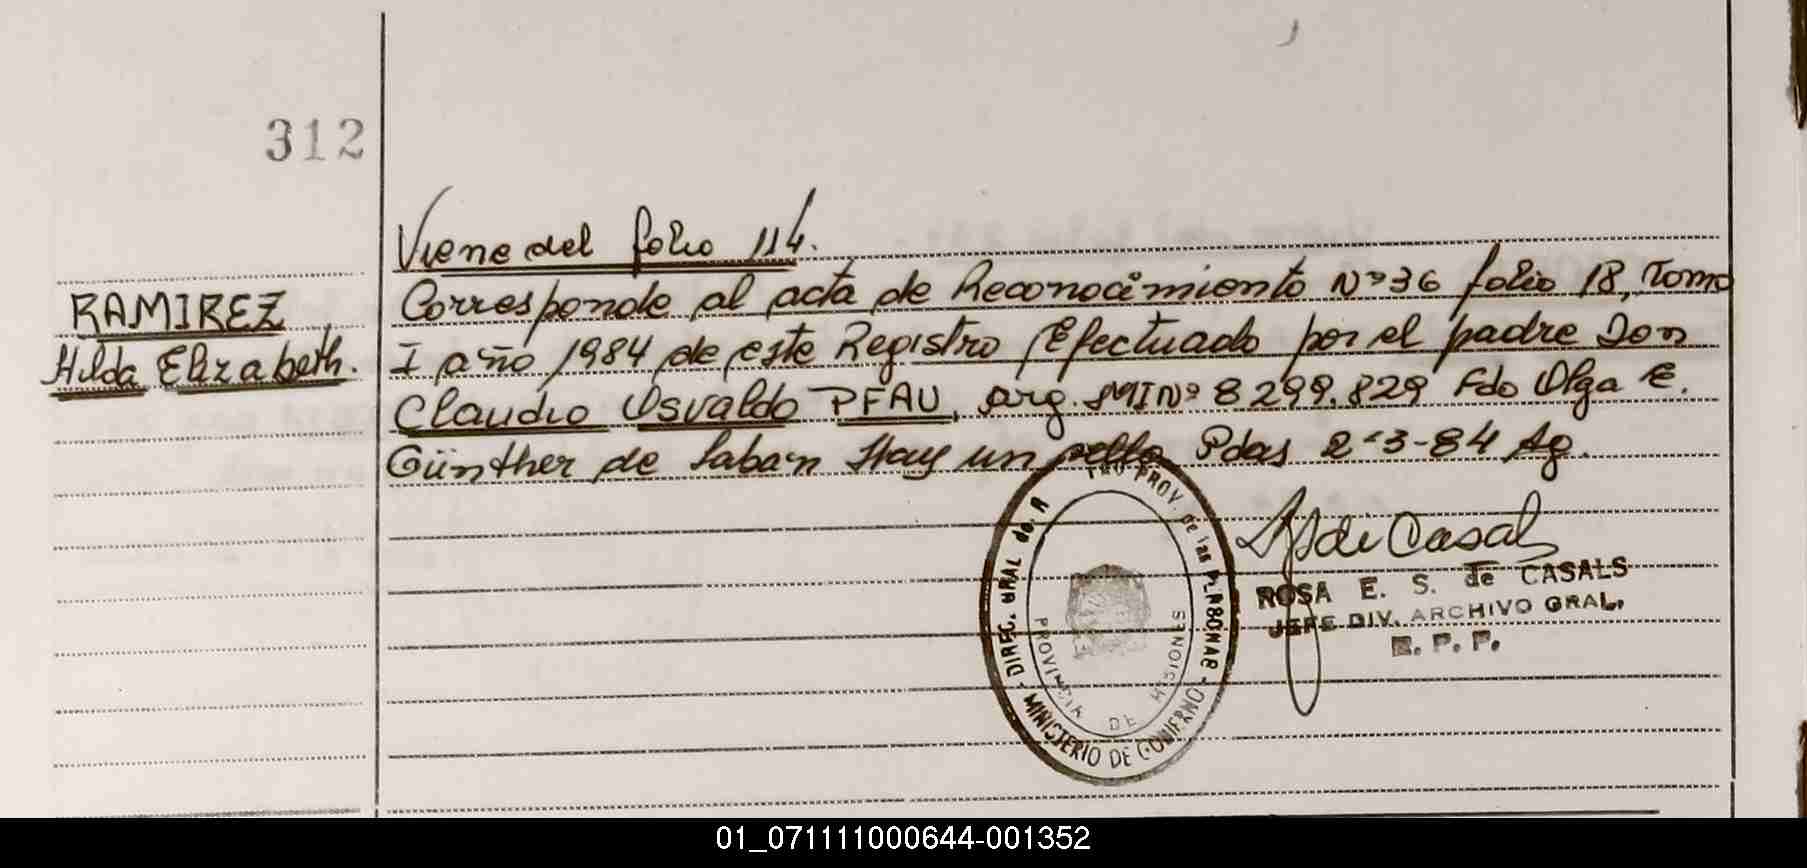 312
Viene del folio 114.
RAMIREZ
Hilda Elizabeth.
Corresponde al acta de Reconocimiento Nº 36 folio 18, Tomo
I año 1984 de este Registro Efectuado por el padre Don
Claudio Osvaldo PFAU, arg. MI Nº 8299.829 Fdo Olga E.
Günther de Saban Hay un sello Pdas 2-3-84 Ag.
DIREC. GRAL de. R PROV. De las PERSONAS
MINISTERIO DE GOBIERNO
PROVINCIA DE MISIONES
de Casals
ROSA E. S. de CASALS
JEFE DIV. ARCHIVO GRAL.
R. P. P.
01_071111000644-001352